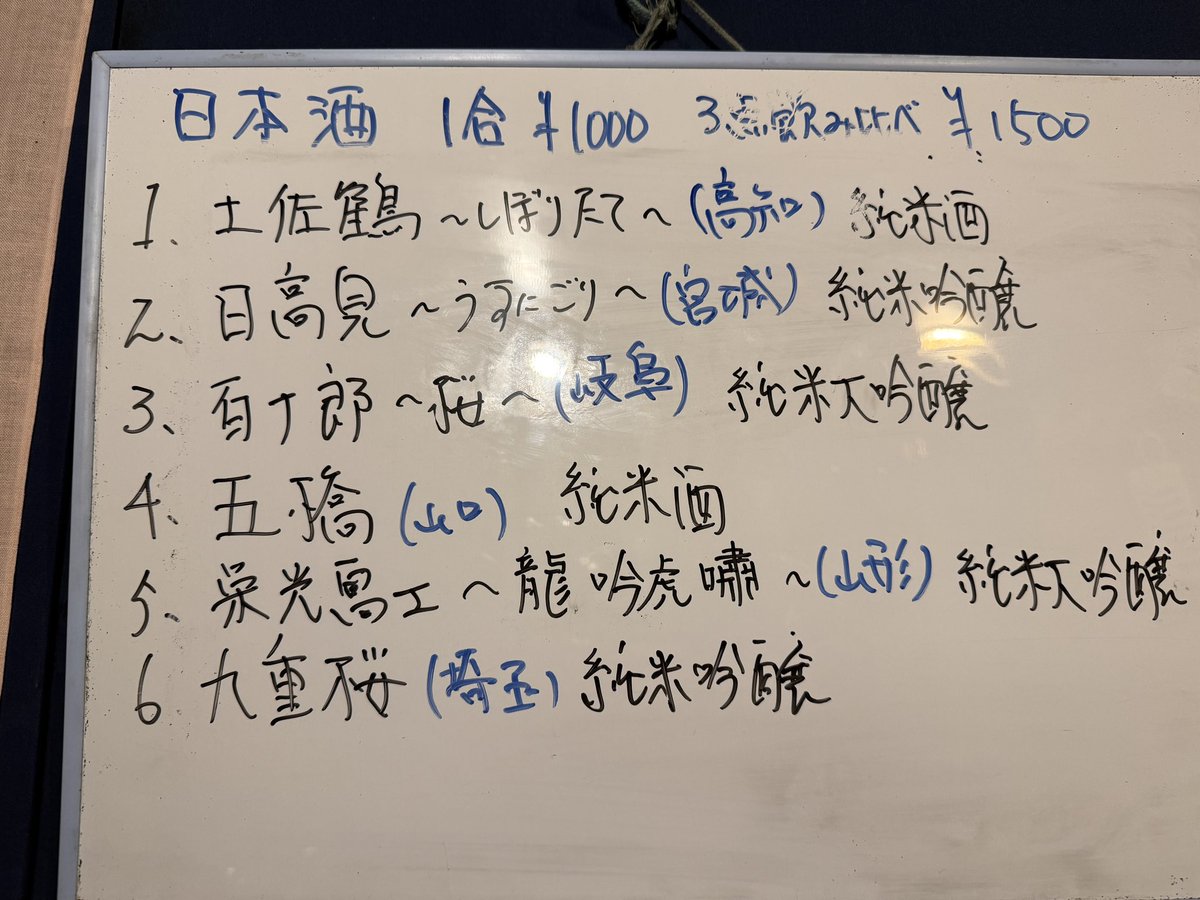 日本酒 1合 ¥1000 3点飲み比べ ¥1500
1、土佐鶴 ~しぼりたて~ (高知) 純米酒
2、日高見 ~うすにごり~ (宮城) 純米吟醸
3、百十郎 ~桜~ (岐阜) 純米大吟醸
4、五橋 (山口) 純米酒
5、栄光冨士 ~龍吟虎嘯~ (山形) 純米大吟醸
6 九重桜 (埼玉) 純米吟醸